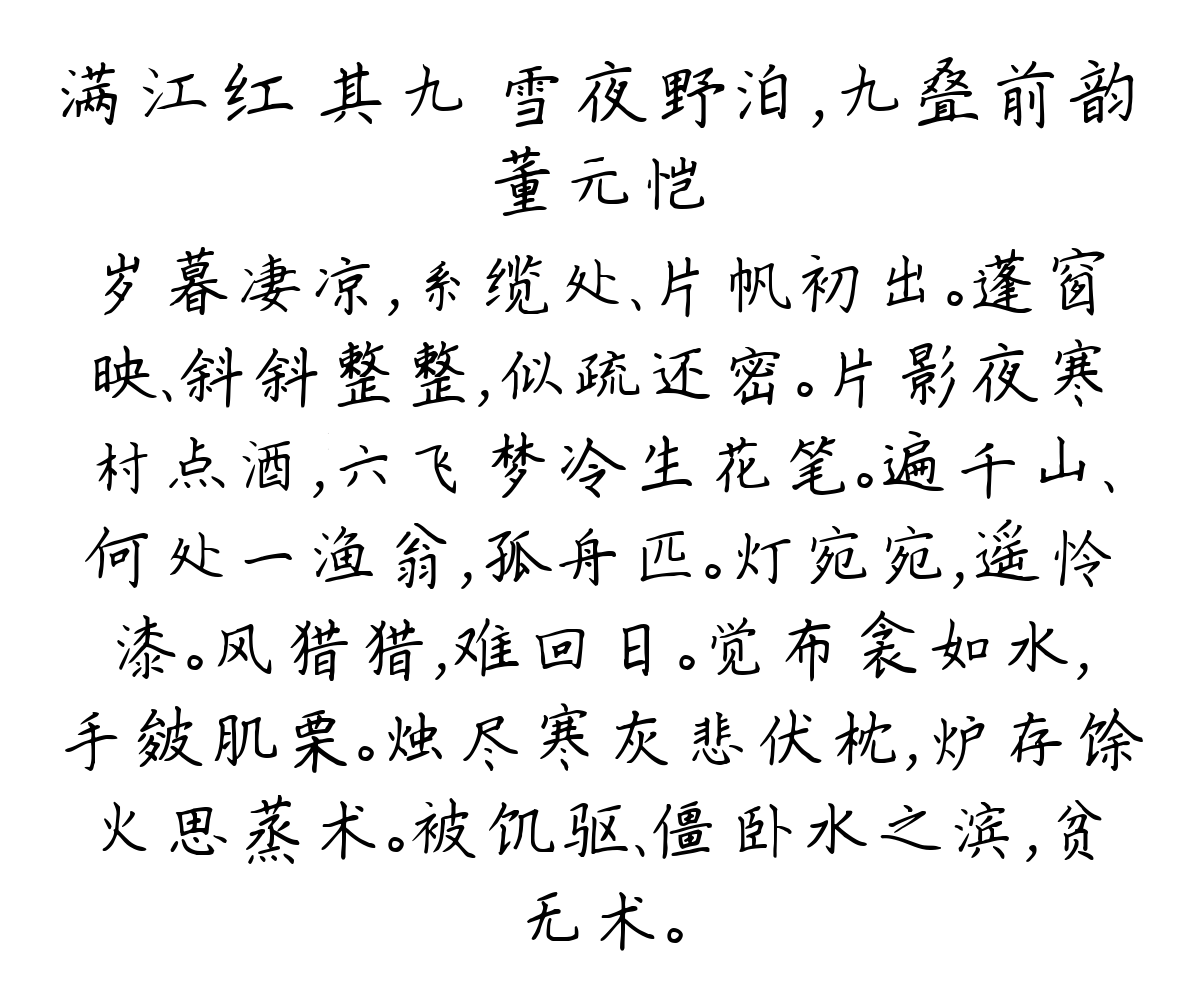 满江红 其九 雪夜野泊,九叠前韵
董元恺
岁暮凄凉,系缆处、片帆初出。蓬窗
映、斜斜整整,似疏还密。片影夜寒
村点酒,六飞梦冷生花笔。遍千山、
何处一渔翁,孤舟匹。灯宛宛,遥怜
漆。风猎猎,难回日。觉布衾如水,
手皴肌栗。烛尽寒灰悲伏枕,炉存馀
火思蒸术。被饥驱、僵卧水之滨,贫
无术。